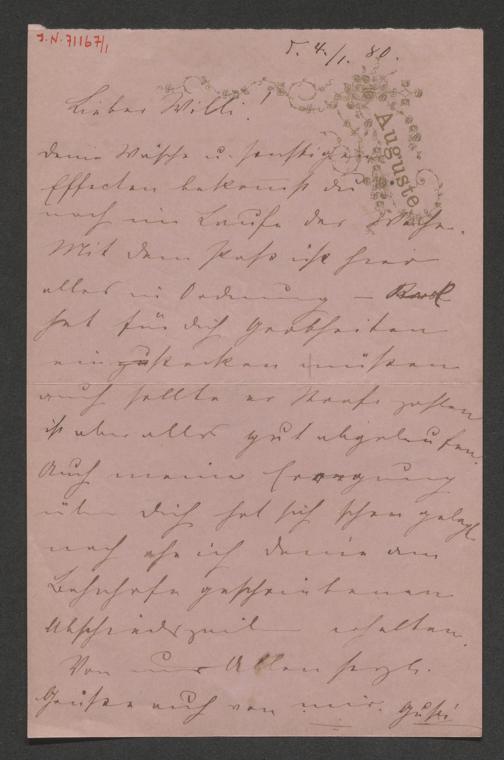 J.N. 71167/1
d. 4./1. 80.
Auguste
Lieber Willi!
Deine Wäsche u. sonstigen
Effecten bekommst du
noch im Laufe der Woche.
Mit dem Pass ist hier
alles in Ordnung –
hat für dich Grobheiten
einzustecken müssen
auch sollte er Strafe zahlen
ist aber alles gut abgelaufen.
Auch meine Erregung
über dich hat sich schon gelegt
noch ehe ich deine am
Bahnhofe geschriebenen
Abschiedszeilen erhalten.
Von uns Allen herzl.
Grüße auch von mir. Gusti